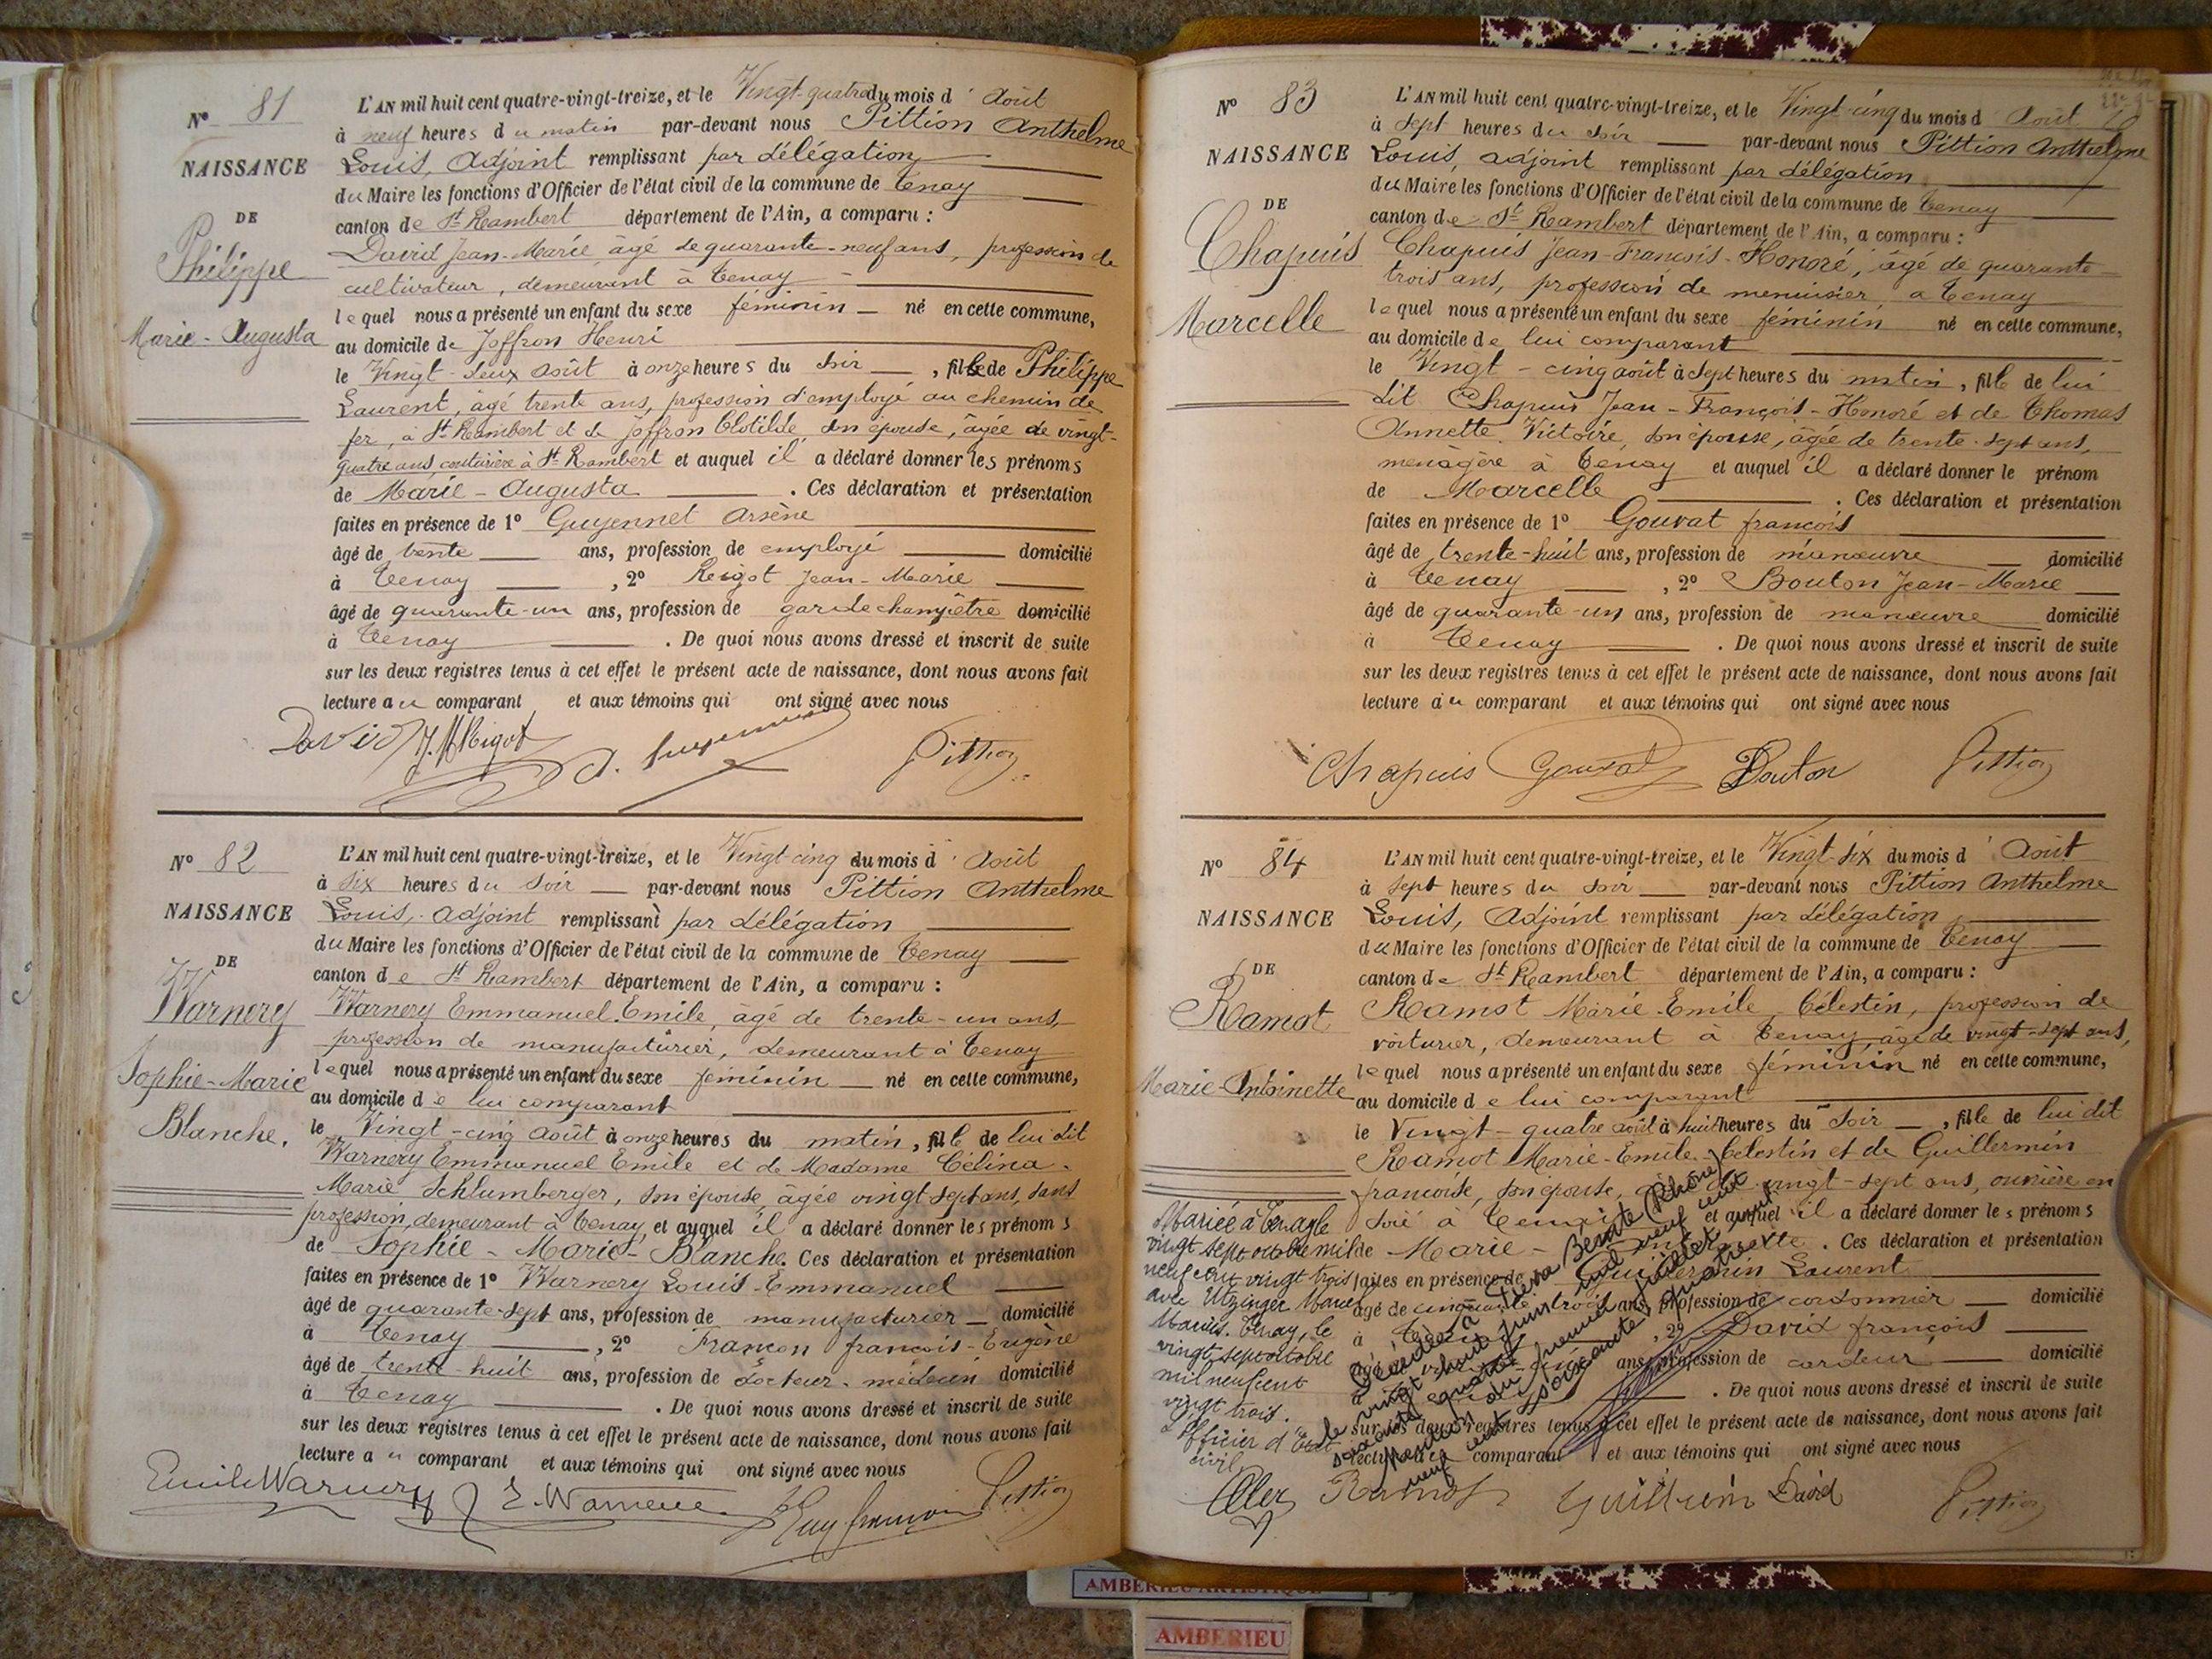 N° 81
NAISSANCE
DE
Philippe
Marie-Augusta
L'AN mil huit cent quatre-vingt-treize, et le Vingt-quatre du mois d'Août
à neuf heures du matin par-devant nous Pittion Anthelme
Louis, Adjoint remplissant par délégation
du Maire les fonctions d'Officier de l'état civil de la commune de Tenay
canton de St Rambert département de l'Ain, a comparu :
David Jean-Marie âgé de quarante-neuf ans, profession de
cultivateur, demeurant à Tenay
lequel nous a présenté un enfant du sexe féminin né en cette commune,
au domicile de Joffron Henri
le Vingt-deux août à onze heures du soir, fille de Philippe
Laurent, âgé trente ans, profession d'employé au chemin de
fer, à St Rambert et de Joffron Clotilde son épouse, âgée de vingt-
quatre ans, couturière à St Rambert et auquel il a déclaré donner les prénoms
de Marie-Augusta. Ces déclaration et présentation
faites en présence de 1° Guyennet Arsène
âgé de trente ans, profession de employé domicilié
à Tenay, 2° Rigot Jean-Marie
âgé de quarante-un ans, profession de garde champêtre domicilié
à Tenay. De quoi nous avons dressé et inscrit de suite
sur les deux registres tenus à cet effet le présent acte de naissance, dont nous avons fait
lecture au comparant et aux témoins qui ont signé avec nous
David J.M Rigot Pittion
N° 82
NAISSANCE
DE
Warnery
Sophie-Marie
Blanche.
L'AN mil huit cent quatre-vingt-treize, et le Vingt-cinq du mois d'Août
à six heures du soir par-devant nous Pittion Anthelme
Louis, adjoint remplissant par délégation
du Maire les fonctions d'Officier de l'état civil de la commune de Tenay
canton de St Rambert département de l'Ain, a comparu :
Warnery Emmanuel Emile, âgé de trente-un ans,
profession de manufacturier, demeurant à Tenay
lequel nous a présenté un enfant du sexe féminin né en cette commune,
au domicile de lui comparant
le Vingt-cinq Août à onze heures du matin, fille de lui dit
Warnery Emmanuel Emile et de Madame Célina
Marie Schlumberger, son épouse âgée vingt sept ans, sans
profession, demeurant à Tenay, et auquel il a déclaré donner les prénoms
de Sophie-Marie-Blanche. Ces déclaration et présentation
faites en présence de 1° Warnery Louis-Emmanuel
âgé de quarante-sept ans, profession de manufacturier domicilié
à Tenay, 2° Françon françois-Eugène
âgé de trente-huit ans, profession de docteur-médecin domicilié
à Tenay. De quoi nous avons dressé et inscrit de suite
sur les deux registres tenus à cet effet le présent acte de naissance, dont nous avons fait
lecture au comparant et aux témoins qui ont signé avec nous
Emile Warnery Pittion
N° 83
NAISSANCE
DE
Chapuis
Marcelle
L'AN mil huit cent quatre-vingt-treize, et le Vingt-cinq du mois d'Août
à sept heures du soir par-devant nous Pittion Anthelme
Louis, adjoint remplissant par délégation
du Maire les fonctions d'Officier de l'état civil de la commune de Tenay
canton de St Rambert département de l'Ain, a comparu :
Chapuis Jean-François-Honoré, âgé de quarante-
trois ans, profession de menuisier, a Tenay
lequel nous a présenté un enfant du sexe féminin né en cette commune,
au domicile de lui comparant
le Vingt-cinq août à sept heures du matin, fille de lui
dit Chapuis Jean-François-Honoré et de Thomas
Annette Victoire, son épouse, âgée de trente-sept ans,
menagère à Tenay et auquel il a déclaré donner le prénom
de Marcelle. Ces déclaration et présentation
faites en présence de 1° Gouvat françois
âgé de trente-huit ans, profession de manœuvre domicilié
à Tenay, 2° Bouton Jean-Marie
âgé de quarante-un ans, profession de manœuvre domicilié
à Tenay. De quoi nous avons dressé et inscrit de suite
sur les deux registres tenus à cet effet le présent acte de naissance, dont nous avons fait
lecture au comparant et aux témoins qui ont signé avec nous
Chapuis Gouvat Bouton Pittion
N° 84
NAISSANCE
DE
Ramot
Marie-Antoinette
L'AN mil huit cent quatre-vingt-treize, et le Vingt-six du mois d'Août
à sept heures du soir par-devant nous Pittion Anthelme
Louis, Adjoint remplissant par délégation
du Maire les fonctions d'Officier de l'état civil de la commune de Tenay
canton de St Rambert département de l'Ain, a comparu :
Ramot Marie-Emile Célestin, profession de
voiturier, demeurant à Tenay, âgé de vingt-sept ans,
lequel nous a présenté un enfant du sexe féminin né en cette commune,
au domicile de lui comparant
le Vingt-quatre août à huit heures du soir, fille de lui dit
Ramot Marie-Emile-Celestin et de Guillermin
francoise, son épouse, vingt-sept ans, ouvrière en
soie à Tenay et auquel il a déclaré donner les prénoms
de Marie-Antoinette. Ces déclaration et présentation
faites en présence de Guillermin Laurent
âgé de cinquante trois ans, profession de cordonnier domicilié
à Tenay, 2° David françois
âgé ans, profession de cardeur domicilié
à. De quoi nous avons dressé et inscrit de suite
sur les deux registres tenus à cet effet le présent acte de naissance, dont nous avons fait
lecture au comparant et aux témoins qui ont signé avec nous
Ramot David Pittion
Mariée à Tenay le
vingt sept octobre mil
neuf cent vingt trois
avec Utzinger Marcel
Tenay, le
vingt sept octobre
mil neuf cent
vingt trois.
L'officier d'Etat
civil
Décédée à (Rhône)
le vingt-huit juin mil neuf cent
soixante quatre
Mention du premier juillet mil
neuf cent soixante quatre
AMBERIEU ARTISTIQUE
AMBERIEU